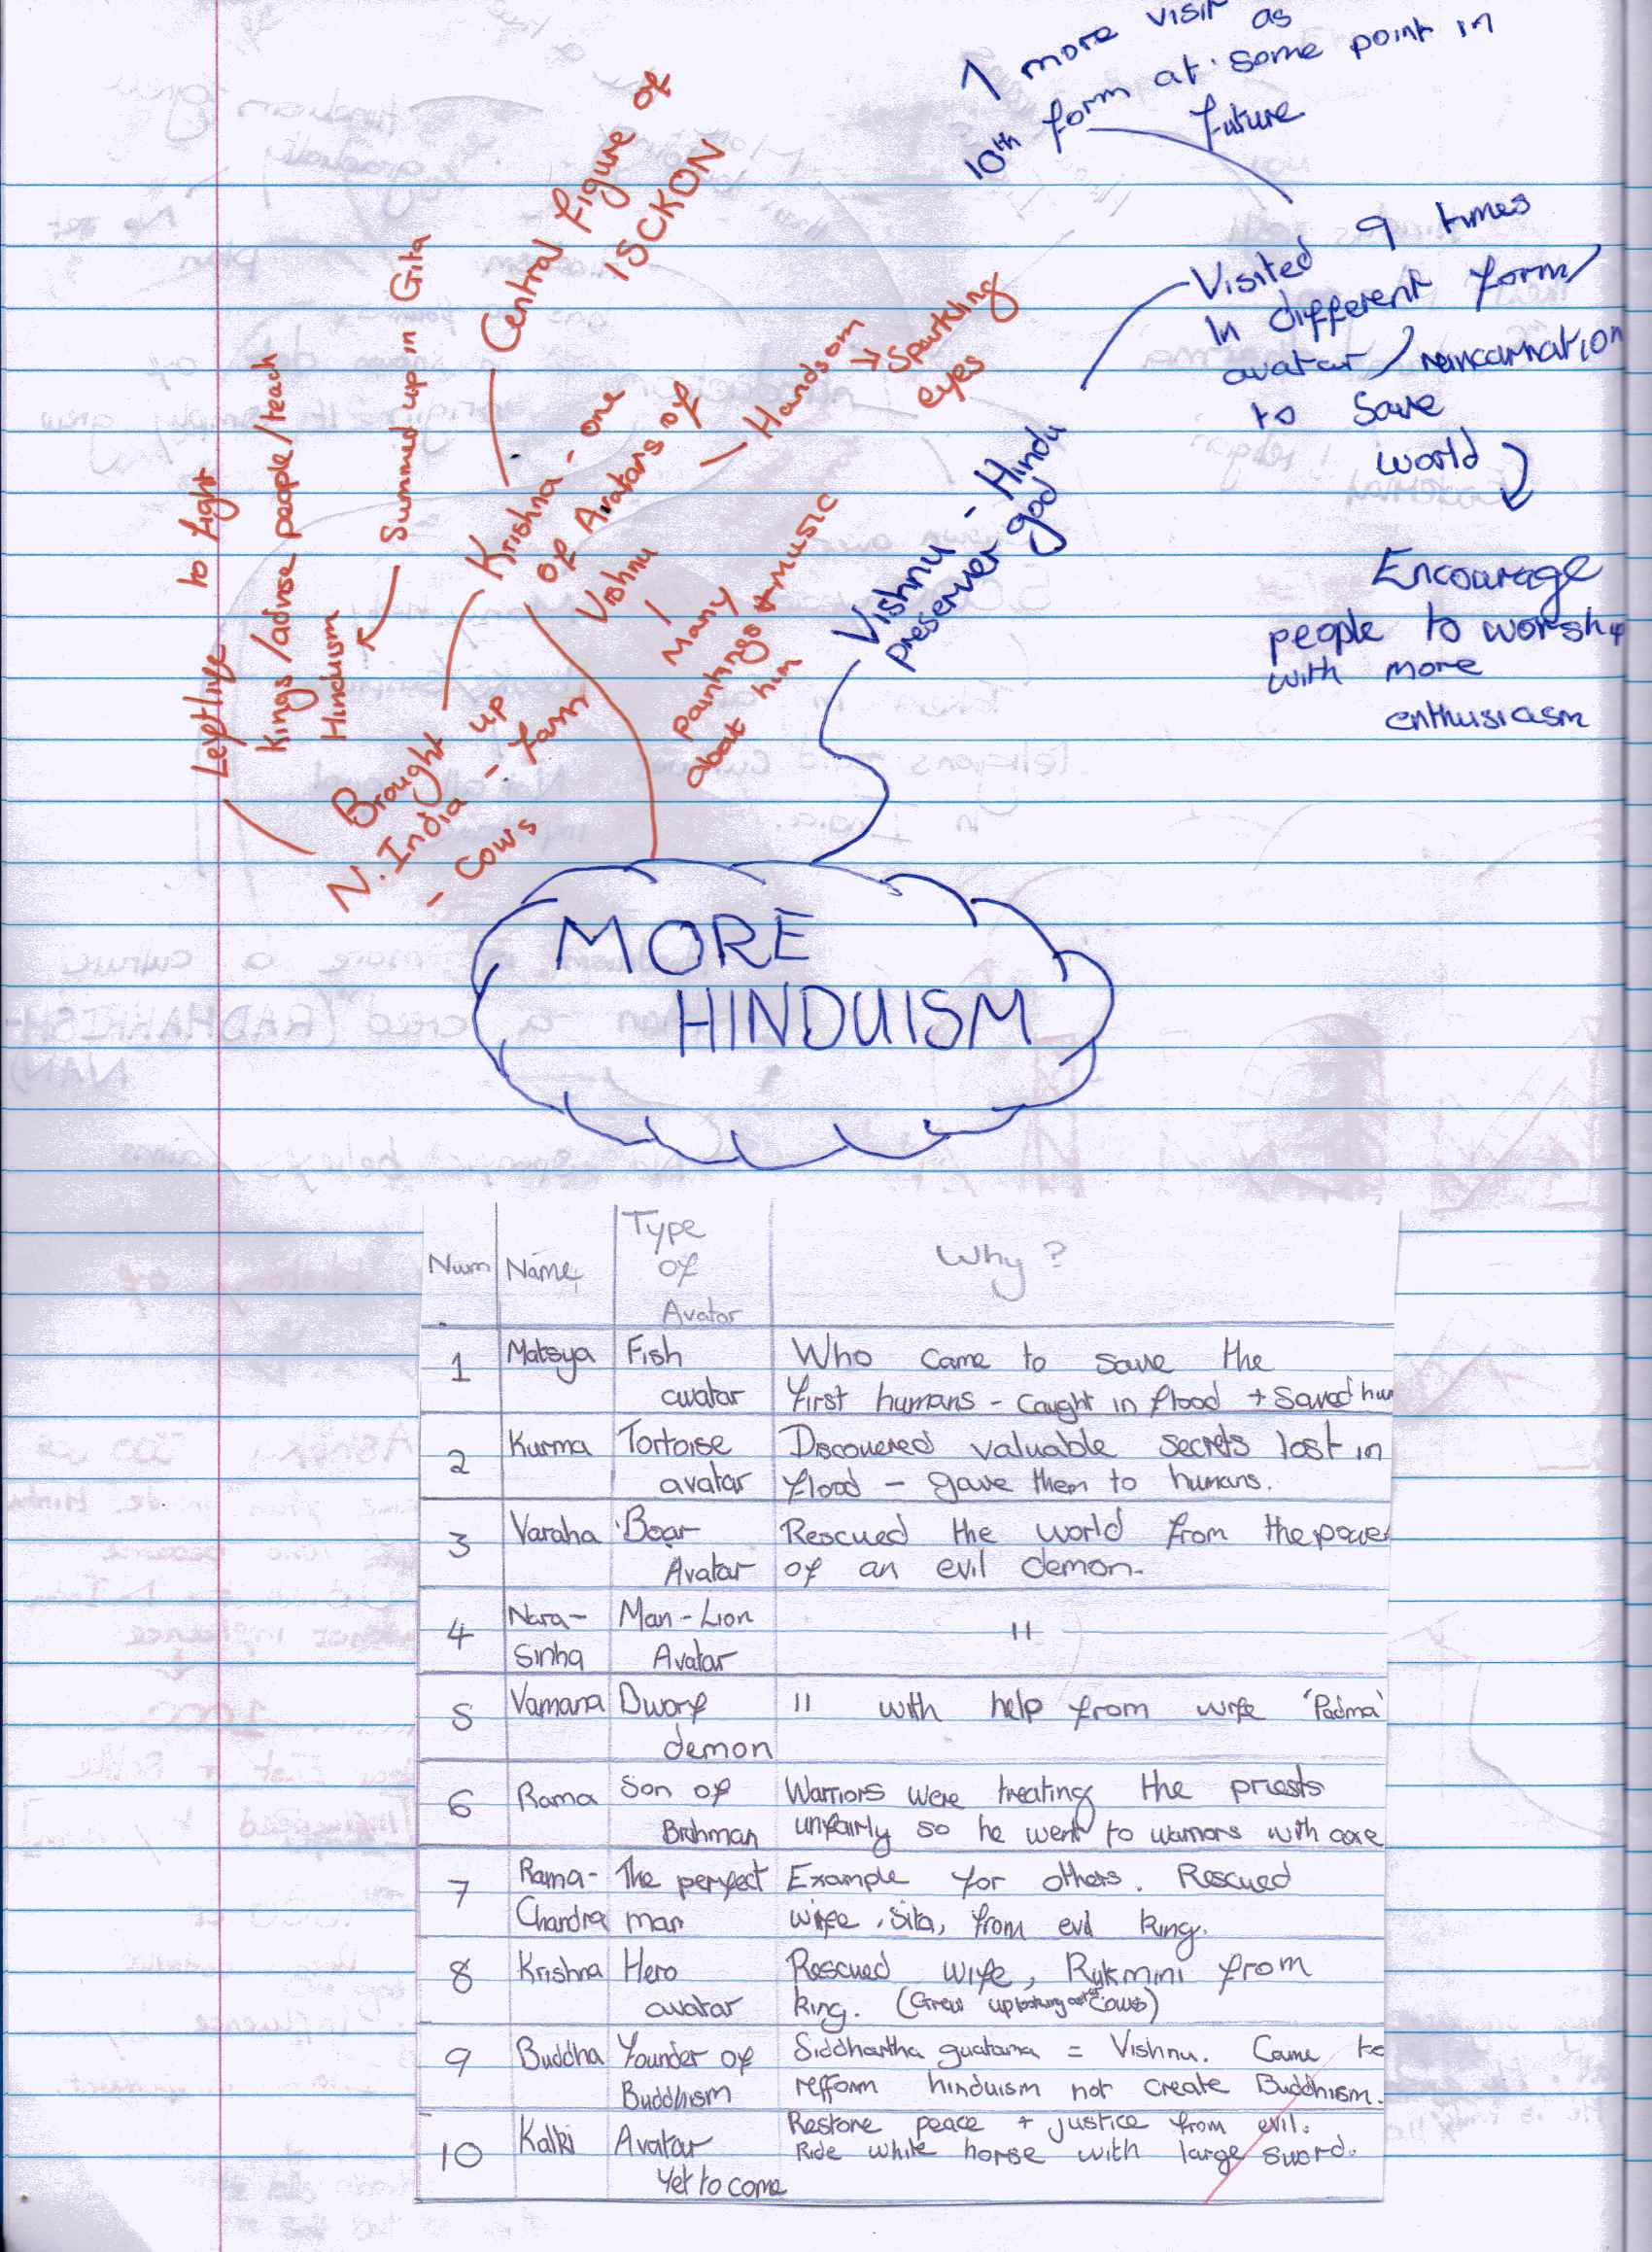 1 more visit as
10th form at some point in
future
Visited 9 times
In different form/
avatar/reincarnation
to save
world
Encourage
people to worship
with more
enthusiasm
Vishnu - Hindu
preserver god
Central figure of
ISCKON
Krishna - one
of Avatars of
Vishnu
Handsom
→ Sparkling
eyes
Many
paintings + music
about him
Brought up
N. India - farm
- cows
Left life to fight
Kings/advise people/teach
Hinduism
Summed up in Gita
MORE
HINDUISM
Num Name Type of Avatar Why?
1 Matsya Fish avatar Who came to save the
first humans - caught in flood + saved hum
2 Kurma Tortoise avatar Discovered valuable secrets lost in
flood - gave them to humans.
3 Varaha Boar Avatar Rescued the world from the power
of an evil demon.
4 Nara-
Sinha Man-Lion Avatar "
5 Vamana Dworf demon " with help from wife 'Padma'
6 Rama Son of Brahman Warriors were treating the priests
unfairly so he went to warriors with axe
7 Rama-
Chandra The perfect man Example for others. Rescued
wife, Sita, from evil king.
8 Krishna Hero avatar Rescued wife, Rukmini from
king. (Grew up looking after cows)
9 Buddha founder of Buddhism Siddhartha guatama = Vishnu. Came to
refform hinduism not create Buddhism.
10 Kalki Avatar Yet to come Restore peace + justice from evil.
Ride white horse with large sword.